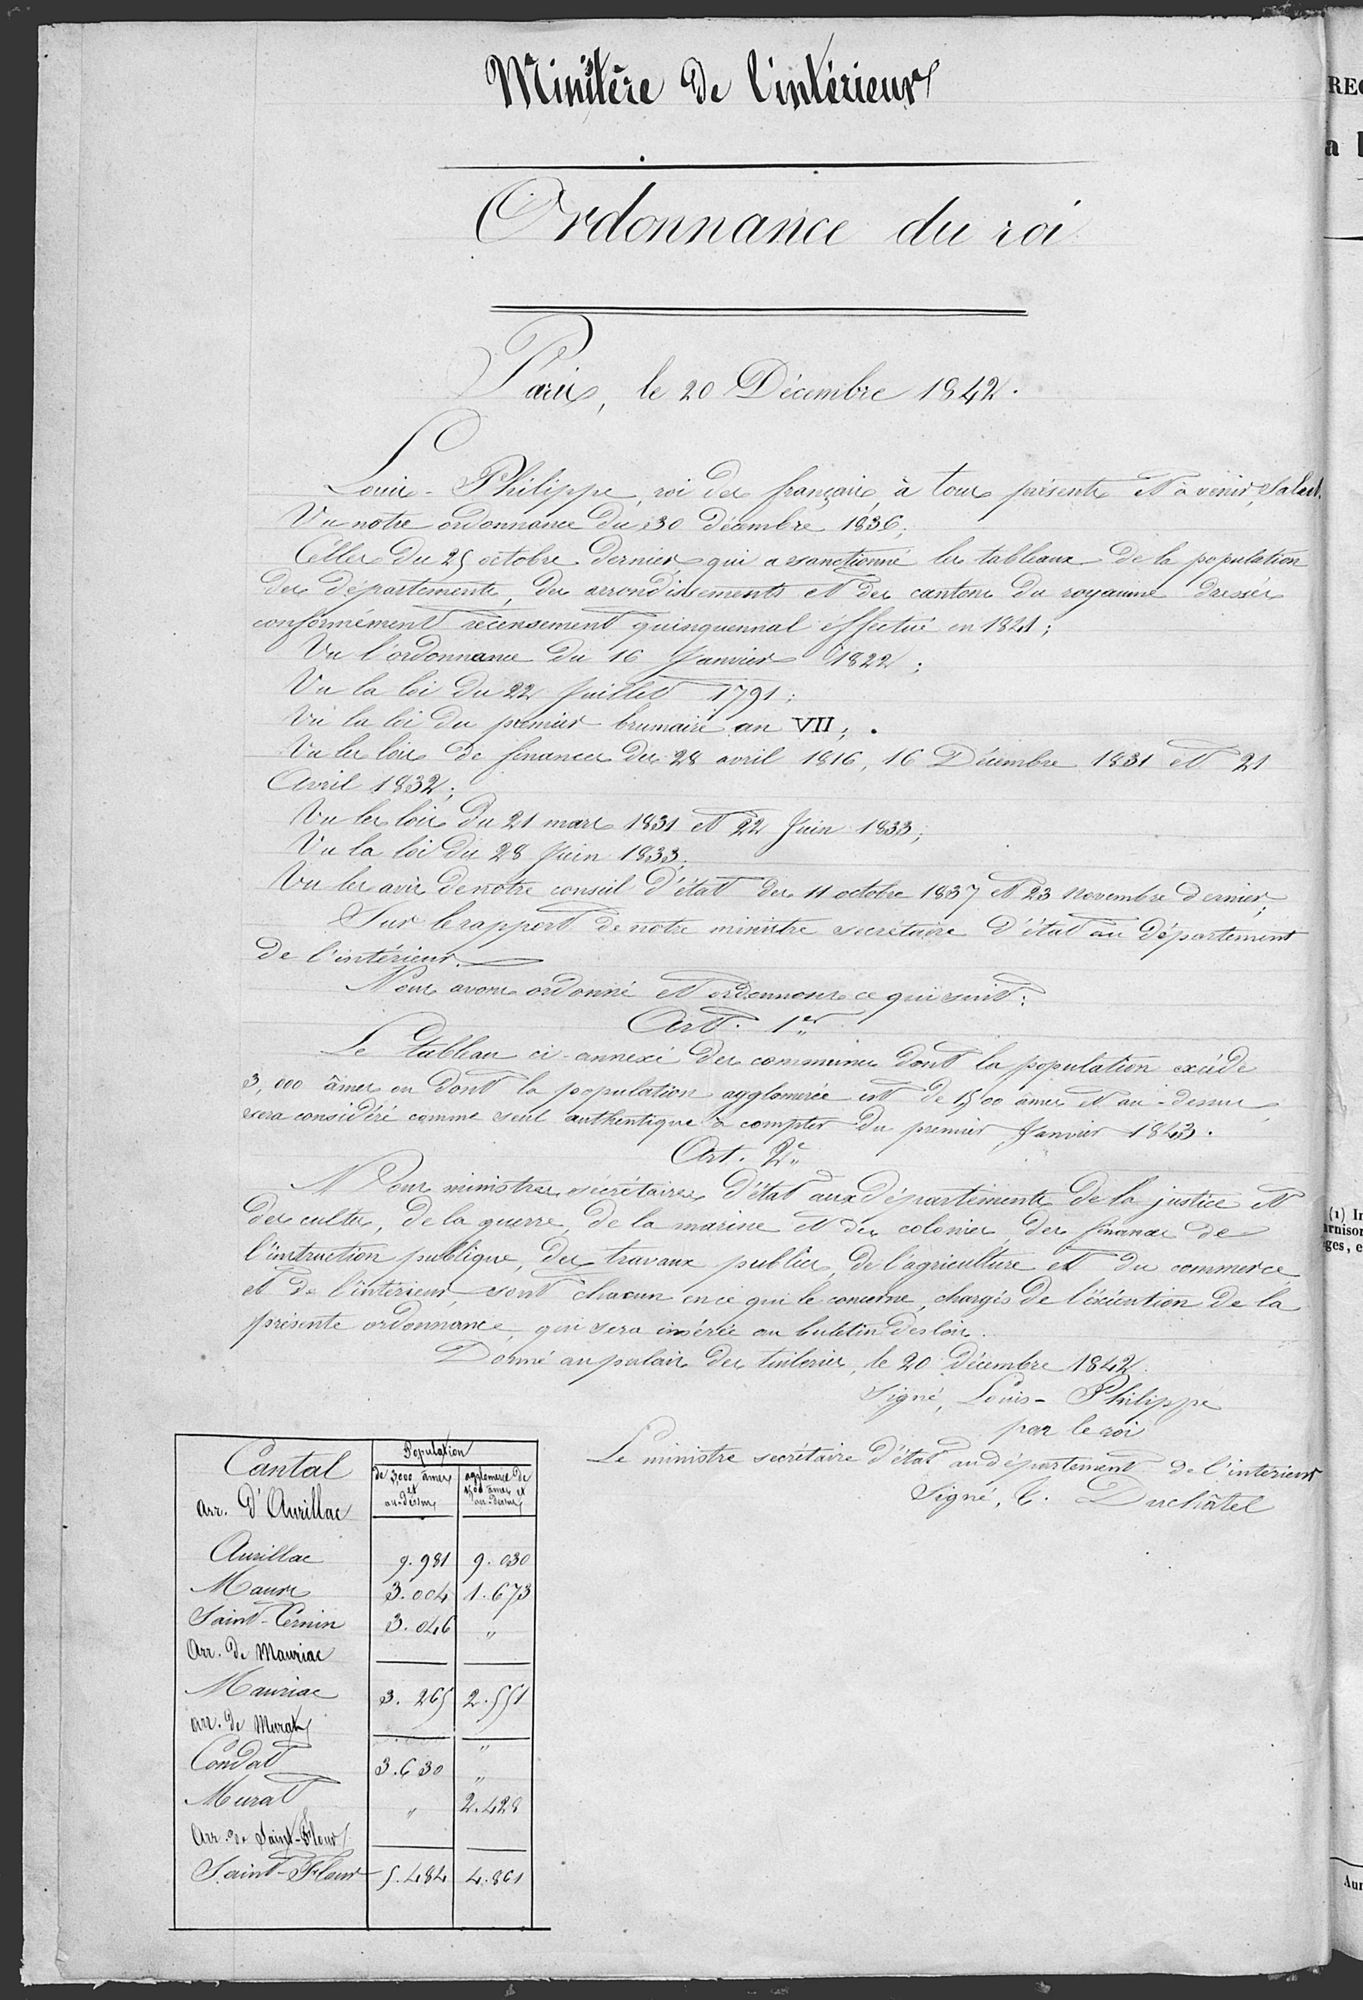 Ministère de l'intérieur
Ordonnance du roi
Paris, le 20 Décembre 1842.
Louis-Philippe, roi des français à tous présents et à venir, Salut.
Vu notre ordonnance du 30 décembre 1836;
Celles du 25 octobre dernier, qui a sanctionné les tableaux de la population
des départements, des arrondissements et des cantons du royaume dressés
conformément recensement quinquennal éffectué en 1841;
Vu l'ordonnance du 16 Janvier 1822;
Vu la loi du 22 Juillet 1791;
Vu la loi du premier brumaire an VII;
Vu les lois de finances des 28 avril 1816, 16 Décembre 1831 et 21
Avril 1832;
Vu les lois du 21 mars 1831 et 22 Juin 1833;
Vu la loi du 28 Juin 1833;
Vu les avis de notre conseil d'état des 11 octobre 1837 et 23 novembre dernier;
Sur le rapport de notre ministre secrétaire d'état au département
de l'intérieur.
Nous avons ordonné et ordonnons ce qui suit:
Art. 1er
Le tableau ci-annexé des communes dont la population excède
3,000 âmes ou dont la population agglomérée est de 1,500 âmes et au-dessus
sera considéré comme seul authentique à compter du premier Janvier 1843.
Art. 2e
Nos ministres secrétaires d'état aux départements de la justice et
des cultes, de la guerre, de la marine et des colonies, des finances de
l'instruction publique, des travaux publics, de l'agriculture et du commerce
et de l'intérieur, sont chacun en ce qui le concerne, chargés de l'éxécution de la
présente ordonnance, qui sera insérée au buletin des lois.
Donné au palais des tuileries, le 20 décembre 1842.
Signé, Louis-Philippe
par le roi
Le ministre secrétaire d'état au département de l'intérieur
Signé, C. Duchâtel
Cantal
Population
de 3,000 âmes et au-dessus
agglomérée de 1,500 âmes et au-dessus
arr. d'Aurillac
Aurillac 9.981 9.030
Maurs 3.004 1.673
Saint-Cernin 3.046 "
Arr. de Mauriac
Mauriac 3.265 2.551
arr. de Murat
Condat 3.630 "
Murat " 2.428
Arr. de Saint-Flour
Saint-Flour 5.484 4.861